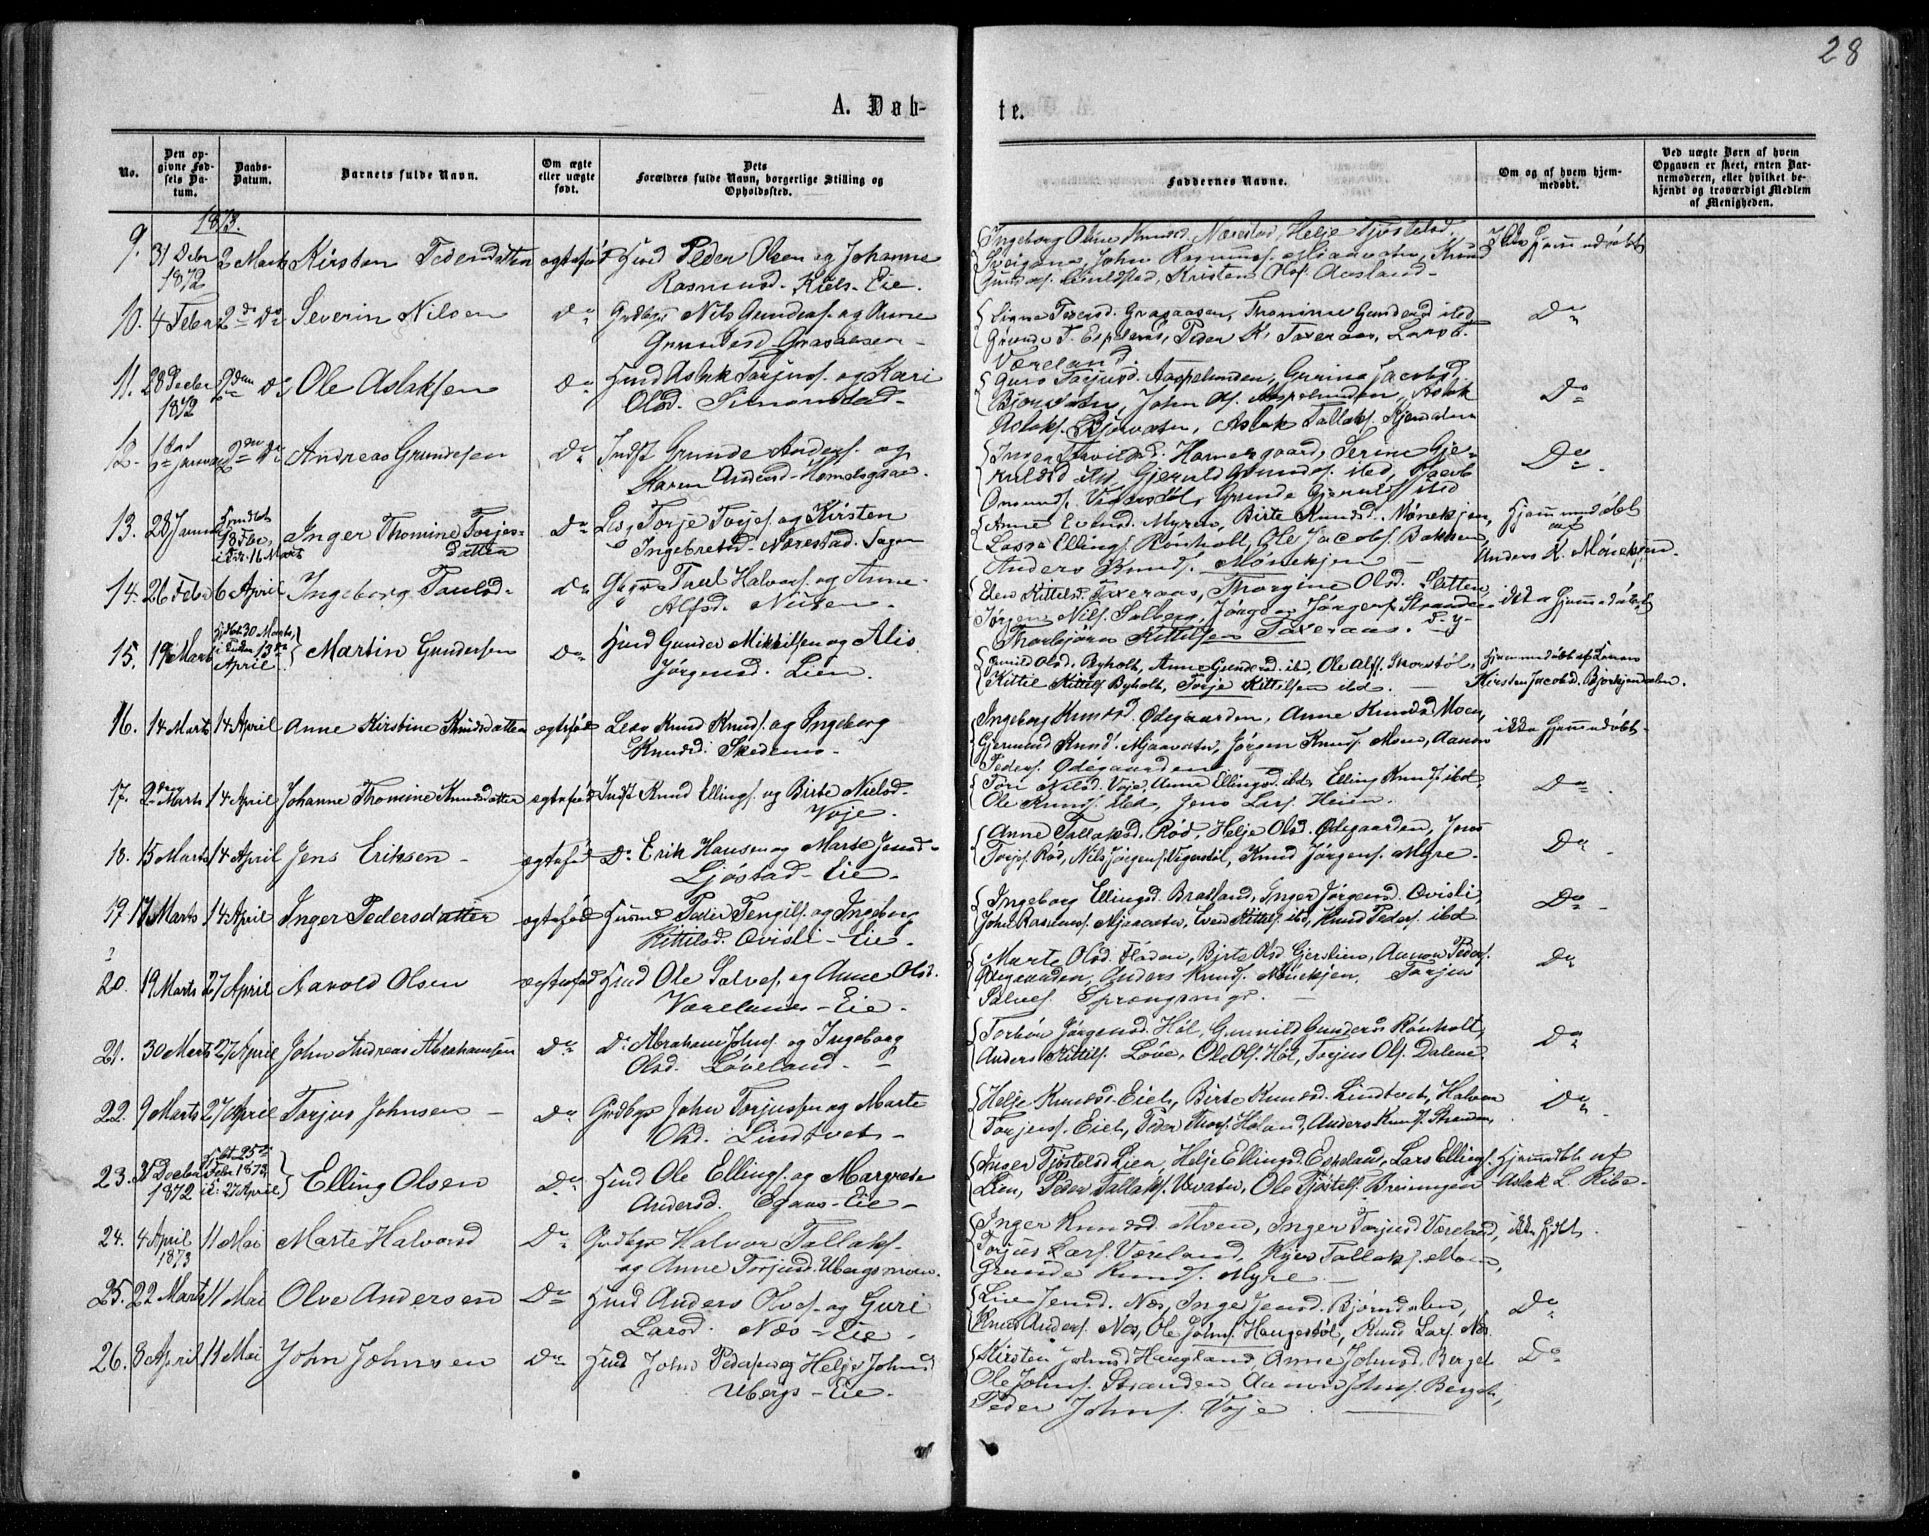 28
A. Døb-
te.
No.
Den op-
givne Fød-
sels Da-
tum.
Daabs-
Datum.
Barnets fulde Navn.
Om ægte
eller uægte
født.
Dets
Forældres fulde Navn, borgerlige Stilling og
Opholdssted.
Faddernes Navne.
Om og af hvem hjem-
medøbt.
Ved uægte Børn af hvem
Opgaven er skeet, enten Bar-
nemoderen, eller hvilket be-
kjendt og troværdigt Medlem
af Menigheden.
1873.
9. 31 Decbr 2 Marts Kirsten Pedersdatter ægtefød Husd Peder Olsen og Johanne
1872 Rasmusd. Eie.
Ingeborg Knudsd. Nærestad, Helje Tjøstelsd.
John Rasmuss. Mjaavatn, Knud
Kristen Olss. Aasland
Ikke Hjemmedøbt
10. 4 Febr 2den Do Severin Nilsen Do Grdbgr Nils Gunders. og Anne
Gundersd. Graaaasen
Graaaasen, Thomine Gundersd ibd
T. Esperaas, Peder K. Taxeraas, Jacob T.
Væreland.
Do
11. 28 Decbr 2den Do Ole Aslaksen Do Husd Aslak Torjuss. og Kari
1872 Olsd. Simonstad
Guro Torjusd. Aaspelunden, Gurine Jacobsd
Bjorvatn, John Ols. Aaspelunden, Aslak
Aslaks. Bjorvatn, Aslak Tallaks. Hjemdalen
Do
12. 1ste Januar 2den Do Andreas Grundesen Do Indst Grunde Anders. og
Karen Andersd. Homelsgaard
Inger Tarvildsd. Homergaard, Serine Gje-
ruldsd ibd, Gjeruld Grundes. ibd, Jacob
Omunds. Vigerstøl, Grunde Gjerulds. ibd
Do
13. 28 Januar Hjmdbt 18 Febr, i Kir. 16 Marts Inger Thomine Torjes-
datter Do Torje Torjes. og Kirsten
Ingebretsd. Nærestad.
Anne Evensd. Myren, Birte Knudsd. Mønekjen,
Lasse Ellings. Rønholt, Ole Jacobs. Bakken,
Anders Knuds. Mønekjen
Hjemmedøbt
af
Anders K. Mønekjen
14. 26 Febr 6 April Ingeborg Toulsd. Do Halvors. og Anne
Alfsd.
Elen Kittelsd. Taxeraas, Thorgine Olsd. Sletten
Jørgen Nils. Solberg, Jørgen Jørgens. Stranden
Thorbjørn Kittilsen Taxeraas.
ikke Hjemmedøbt
15. 19 Marts 30 Marts, 13de
April Martin Gundersen Do Husd Gunder Mikkilsen og Alis
Jørgensd. Lien.
Gunild Olsd. Byholt, Anne Gundersd. ibd, Ole Alfs. Thorstøl,
Kittil Kittils. Byholt, Torje Kittilsen ibd.
Hjemmedøbt af
Kirsten Jacobsd. Bjorkjendalen.
16. 14 Marts 14 April Anne Kirstine Knudsdatter ægtefød Knud Knuds. og Ingeborg
Knudsd. Skedemo
Ingeborg Knudsd. Ødegaarden, Anne Knudsd Moen,
Gjermund Knuds. Mjaavatn, Jørgen Knuds. Moen, Aanon
Peders. Ødegaarden
ikke Hjemmedøbt.
17. 2 Marts 14 April Johanne Thomine Knudsdatter ægtefød Indst Knud Ellings. og Birte Nielsd.
Voje.
Tori Nilsd. Voje, Anne Ellingsd. ibd, Elling Knuds. ibd,
Ole Knuds. ibd, Jens Lars. Heien.
Do
18. 15 Marts 14 April Jens Eriksen ægtefød Do Erik Hansen og Marte Jensd.
Ljøstad Eie.
Anne Tallaksd. Rød, Helje Olsd. Ødegaarden, Jens
Torjes. Rød, Nils Jørgens. Vigerstøl, Knud Jørgens. Myre
Do
19 17 Marts 14 April Inger Pedersdatter ægtefød Husmd Peder Tengils. og Ingeborg
Kittilsd. Ovisli Eie.
Ingeborg Ellingsd. Bratland, Inger Jørgensd. Ovisli,
John Rasmuss. Mjaavatn, Even Kittils. ibd, Knud Peders. ibd
Do
20. 19 Marts 27 April Aavold Olsen ægtefød Husd Ole Salves. og Anne Olsd.
Værelands Eie.
Marte Olsd. Floden, Birte Olsd Gjerslien, Aanon Peders.
Ødegaarden, Anders Knuds. Mønekjen, Torjus
Salves. Sprængsmyr.
Do
21. 30 Marts 27 April John Andreas Abrahamsen Do Do Abraham Johns. og Ingeborg
Olsd. Løveland.
Torbor Jørgensd. Høl, Gunnild Gundersd Rønholt,
Anders Kittils. Løve, Ole Ols. Høl, Torjus Ols. Dalene
Do
22. 9 Marts 27 April Torjus Johnsen Do Grdbgr John Torjussen og Marte
Olsd. Lindtveit
Helje Knudsd. Eieh, Birte Knudsd. Lindtvet, Halvor
Torjuss. Eieh, Peder Thors. Høland, Anders Knuds. Stranden
Do
23. 31 Decbr Hjbt 25de Febr 1873, i K. 27 April Elling Olsen Do Husd Ole Ellings. og Margrete
1872 Andersd. Egaas Eie
Inger Tjøstelsd Lien, Helje Ellingsd. Espelans, Lars Ellings.
Lien, Peder Tallaks. Vevatn, Ole Tjøstels. Breiungen
Hjemmedøbt af
Aslak L. Ribe
24. 4 April 11 Mai Marte Halvorsd Do Grdbgr Halvor Tallaks.
1873 og Anne Torjusd. Ubergsmoen.
Inger Knudsd. Moen, Inger Torjusd. Væreland,
Torjus Lars. Væreland, Tallaks. Moen,
Grunde Knuds. Myre.
ikke Hjdbt.
25. 22 Marts 11 Mai Olve Andersen Do Husd Anders Olves. og Guri
Larsd. Næs Eie
Live Jensd. Næs, Inge Jensd. Bjørndalen,
Knud Anders. Næs, Ole Johns. Haugestøl, Knud Lars. Næs
Do
26. 8 April 11 Mai John Johnsen Do Husd John Pedersen og Helje Johnsd
Ubergs Eie.
Kirsten Johnsd Haugland, Anne Johnsd. Berget
Ole Johns. Stranden, Aanon Johns. Berget,
Peder Johns. Voje
Do